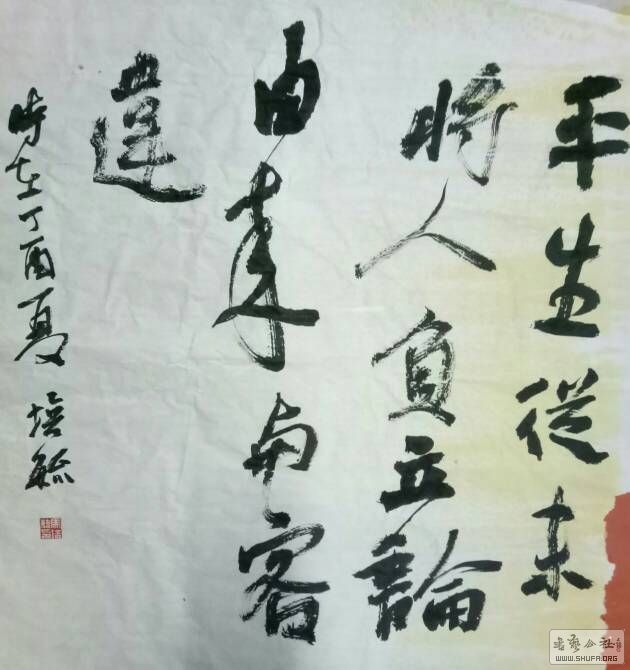 平生從未
將人負立論
由來向客
達
時在丁酉夏 培毓
書藝公社
WWW.SHUFA.ORG